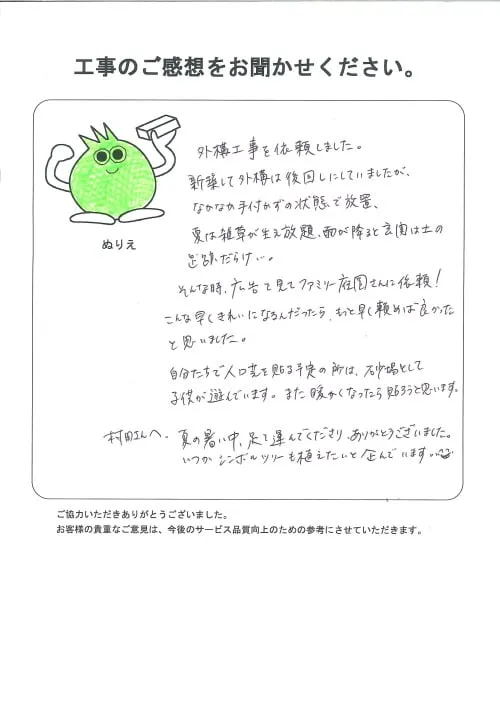 工事のご感想をお聞かせください。
ぬりえ
外構工事を依頼しました。
新築して外構は後回しにしていましたが、
なかなか手付かずの状態で放置、
夏は雑草が生え放題、雨が降ると玄関は土の
足跡だらけ…。
そんな時、広告を見てファミリー庭園さんに依頼！
こんな早くきれいになるんだったら、もっと早く頼めば良かった
と思いました。
自分たちで人口芝を貼る予定の所は、砂場として
子供が遊んでいます。また暖かくなったら貼ろうと思います。
村田さんへ。夏の暑い中、足を運んでくださり、ありがとうございました。
いつかシンボルツリーも植えたいと企んでいます…
ご協力いただきありがとうございました。
お客様の貴重なご意見は、今後のサービス品質向上のための参考にさせていただきます。